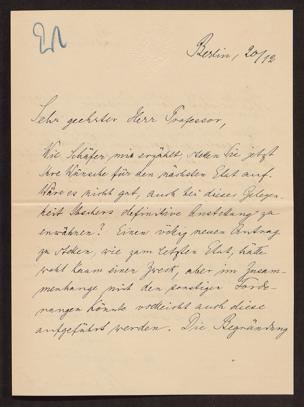 Berlin, 20/12
Sehr geehrter Herr Professor,
Wie Schäfer mir erzählt, stellen Sie jetzt
Ihre Wünsche für den nächsten Etat auf.
Wäre es nicht gut, auch bei dieser Gelegen-
heit definitive Anstellung zu
erwähnen? Einen völlig neuen Antrag
zu stellen, wie zum letzten Etat, hätte
wohl kaum einen Zweck, aber im Zusam-
menhange mit den sonstigen Forde-
rungen könnte vielleicht auch diese
aufgeführt werden. Die Begründung